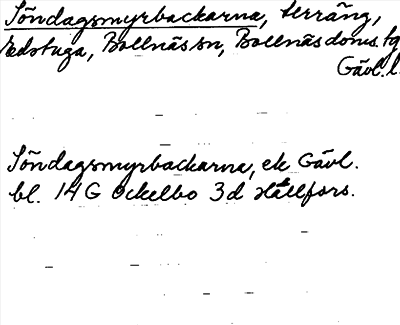 Söndagsmyrbackarna, terräng,
Edstuga, Bollnäs sn, Bollnäs doms. tg
Gävl. l.
Söndagsmyrbackarna, ek Gävl.
bl. 14 G Ockelbo 3 d Hällfors.